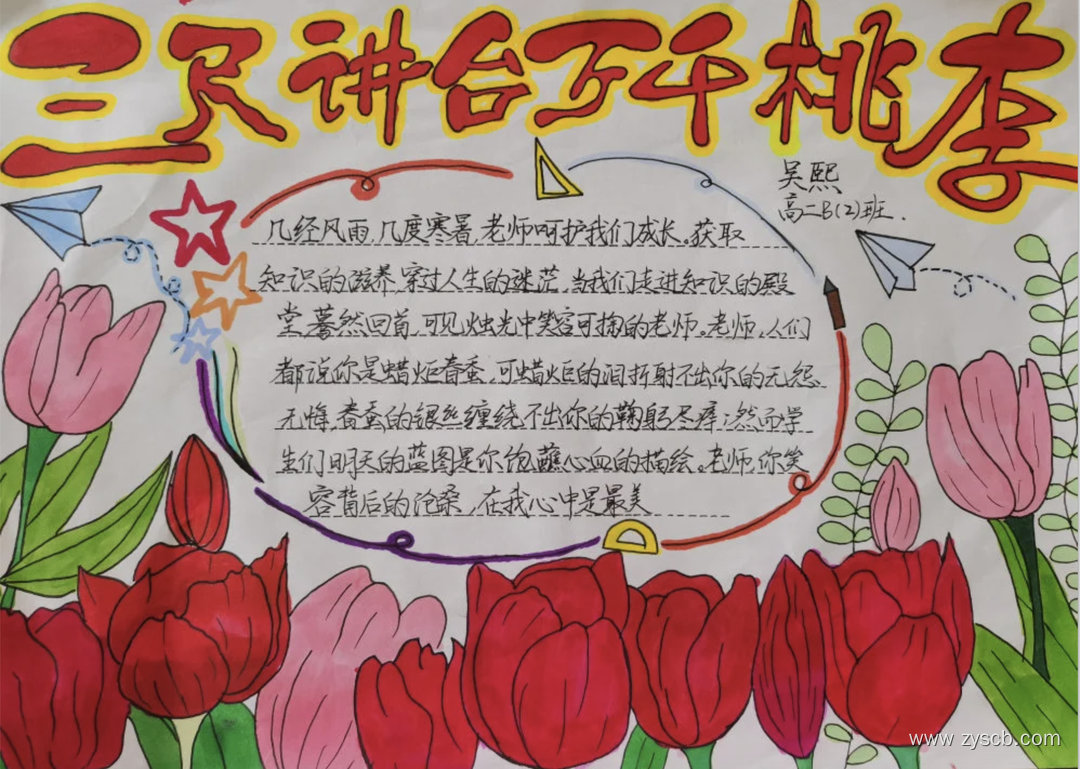 三尺讲台万千桃李
吴熙
高二B(2)班.
几经风雨,几度寒暑,老师呵护我们成长。获取
知识的滋养,穿过人生的迷茫,当我们走进知识的殿
堂,蓦然回首,可见烛光中笑容可掬的老师。老师,人们
都说你是蜡炬春蚕,可蜡炬的泪折射不出你的无怨
无悔,春蚕的银丝缠绕不出你的鞠躬尽瘁;然而学
生们明天的蓝图是你饱蘸心血的描绘。老师,你笑
容背后的沧桑,在我心中是最美
www.zyscb.com